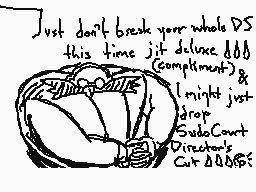 Just don't break your whole DS
this time jit deluxe
(compliment) &
I might just
drop
SudoCourt
Director's
Cut